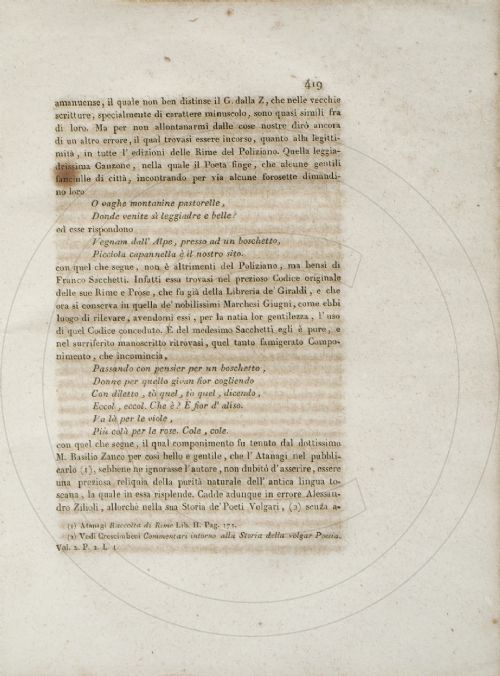 419
amanuense, il quale non ben distinse il G. dalla Z, che nelle vecchie
scritture, specialmente di carattere minuscolo, sono quasi simili fra
di loro. Ma per non allontanarmi dalle cose nostre dirò ancora
di un altro errore, il qual trovasi essere incorso, quanto alla legitti-
mità, in tutte l' edizioni delle Rime del Poliziano. Quella leggia-
drissima Canzone, nella quale il Poeta finge, che alcune gentili
fanciulle di città, incontrando per via alcune forosette dimandi-
no loro
O vaghe montanine pastorelle,
Donde venite sì leggiadre e belle?
ed esse rispondono
Vegnam dall' Alpe, presso ad un boschetto,
Picciola capannella è il nostro sito.
con quel che segue, non è altrimenti del Poliziano, ma bensì di
Franco Sacchetti. Infatti essa trovasi nel prezioso Codice originale
delle sue Rime e Prose, che fu già della Libreria de' Giraldi, e che
ora si conserva in quella de' nobilissimi Marchesi Giugni, come ebbi
luogo di rilevare, avendomi essi, per la natia lor gentilezza, l' uso
di quel Codice conceduto. È del medesimo Sacchetti egli è pure, e
nel surriferito manoscritto ritrovasi, quel tanto famigerato Compo-
nimento, che incomincia,
Passando con pensier per un boschetto,
Donne per quello givan fior cogliendo
Con diletto, tò quel, tò quel, dicendo,
Eccol, eccol. Che è? È fior d' aliso.
Va là per le viole,
Più colà per le rose. Cole, cole.
con quel che segue, il qual componimento fu tenuto dal dottissimo
M. Basilio Zanco per così bello e gentile, che l' Atanagi nel pubbli-
carlo (1), sebbene ne ignorasse l' autore, non dubitò d' asserire, essere
una preziosa reliquia della purità naturale dell' antica lingua to-
scana, la quale in essa risplende. Cadde adunque in errore Alessan-
dro Zilioli, allorchè nella sua Storia de' Poeti Volgari, (2) senza a-
(1) Atanagi Raccolta di Rime Lib. II. Pag. 171.
(2) Vedi Crescimbeni Commentari intorno alla Storia della volgar Poesia.
Vol. 2. P. 2. L. 1.